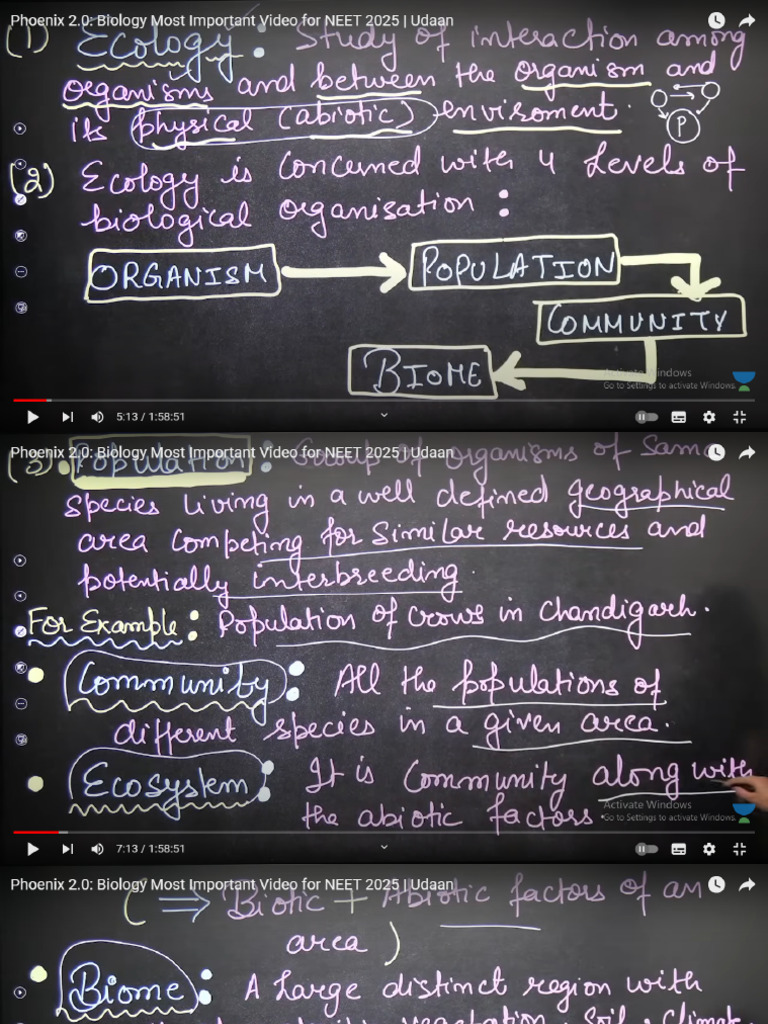 Phoenix 2.0: Biology Most Important Video for NEET 2025 | Udaan
(1) Ecology : Study of interaction among
organisms and between the organism and
its physical (abiotic) enviroment.
P
(2) Ecology is concerned with 4 Levels of
biological organisation :
ORGANISM
POPULATION
COMMUNITY
BIOME
Activate Windows
Go to Settings to activate Windows.
5:13 / 1:58:51
Phoenix 2.0: Biology Most Important Video for NEET 2025 | Udaan
Population : Group of organisms of Same
species living in a well defined geographical
area competing for similar resources and
potentially interbreeding.
For Example : Population of crows in Chandigarh.
Community : All the populations of
different species in a given area.
Ecosystem : It is Community along with
the abiotic factors.
Activate Windows
Go to Settings to activate Windows.
7:13 / 1:58:51
Phoenix 2.0: Biology Most Important Video for NEET 2025 | Udaan
( ⇒ Biotic + Abiotic factors of an
area )
Biome : A Large distinct region with
vegetation, Soil, Climate